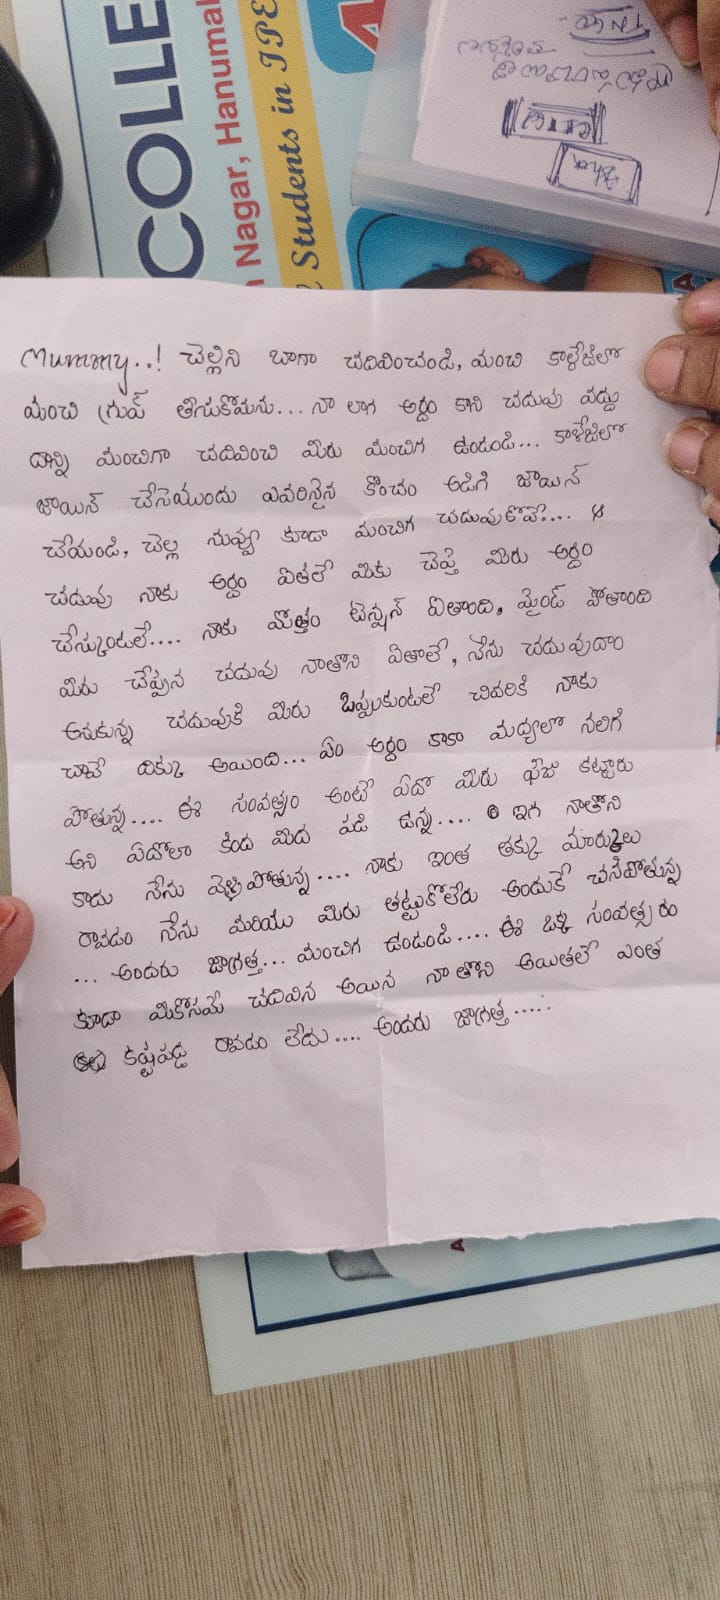 COLLE
Nagar, Hanuma
Students in IPE
Mummy..! చెల్లిని బాగా చదివించండి, మంచి కాలేజీలో
మంచి గ్రుప్ తీసుకోమను... నా లాగ అర్దం కాని చదువు వద్దు
దాన్ని మంచిగా చదివించి మిరు మంచిగ ఉండండి... కాలేజిలో
జాయిన్ చేసెముందు ఎవరినైన కొంచం అడిగి జాయిన్
చేయండి, చెల్ల నువ్వు కూడా మంచిగ చదువుకోవే....
చదువు నాకు అర్దం ఐతలే మికు చెప్తె మిరు అర్దం
చేస్కుంటలే.... నాకు మొత్తం టెన్షన్ ఐతాంది, మైండ్ పోతాంది
మిరు చెప్పిన చదువు నాతోని ఐతాలే, నేను చదువుదాం
అనుకున్న చదువుకి మిరు ఒప్పుకుంటలే చివరికి నాకు
చావే దిక్కు అయింది... ఏం అర్దం కాకా మద్యలో నలిగి
పోతున్న.... ఈ సంవత్సం అంటే ఏదో మిరు ఫీజు కట్టారు
అని ఏదోలా కింద మిద పడి ఉన్న.... ఇగ నాతోని
కాదు నేను వెళ్ళిపోతున్న.... నాకు ఇంత తక్కు మార్కులు
రావడం నేను మరియు మిరు తట్టుకోలేరు అందుకే చనిపోతున్న
... అందరు జాగ్రత్త... మంచిగ ఉండండి.... ఈ ఒక్క సంవత్సరం
కూడా మికోసమే చదివిన అయిన నాతోని అయితలే ఎంత
కష్టపడ్డ రావడం లేదు.... అందరు జాగ్రత్త.....